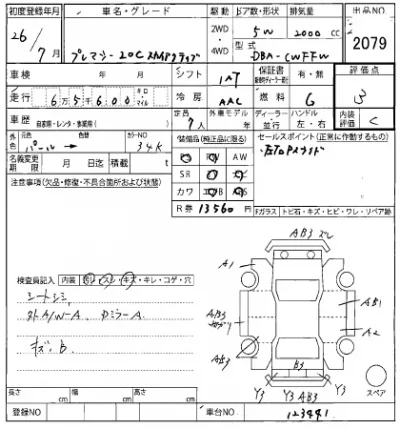 初度登録年月 車名・グレード 駆動 ドア数・形状 排気量 出品NO
26 / 7月 プレマシー 20C SKYアクティブ 2WD ・ 4WD 5W 2000 cc 2079
型式 DBA-CWFFW
車検 年 月 シフト IAT 保証書 有・無 評価点
走行 6万5千600 km マイル 冷房 AAC 燃料 G 3
車歴 自家用・レンタ・事業用( ) 定員 7人 外車モデル 年 ディーラー 並行 ハンドル 左・右 内装評価 C
外色 元色 パール→ 色替 カラーNO 34K 装備品(純正品に限る) セールスポイント(正常に作動するもの)
名義変更期限 月 日迄 積載 t PS PW AW
左PスライD
注意事項(欠品・修復・不具合箇所および状態) SR ナビ TV
カワ エアB ABS
R券 13560 円 Fガラス トビ石・キズ・ヒビ・ワレ・リペア跡
AB3 ズレ
A1
検査員記入 内装 ヨゴレ・スレ・キズ・キレ・コゲ・穴
シートシミ
外A/W-A、Dミラー-A
キズ・b
A/B3
AB1
A2
AB3
B3
Y3 Y3 AB3 Y3
スペア
長さ cm 幅 cm 高さ cm
登録NO 車台NO 123441